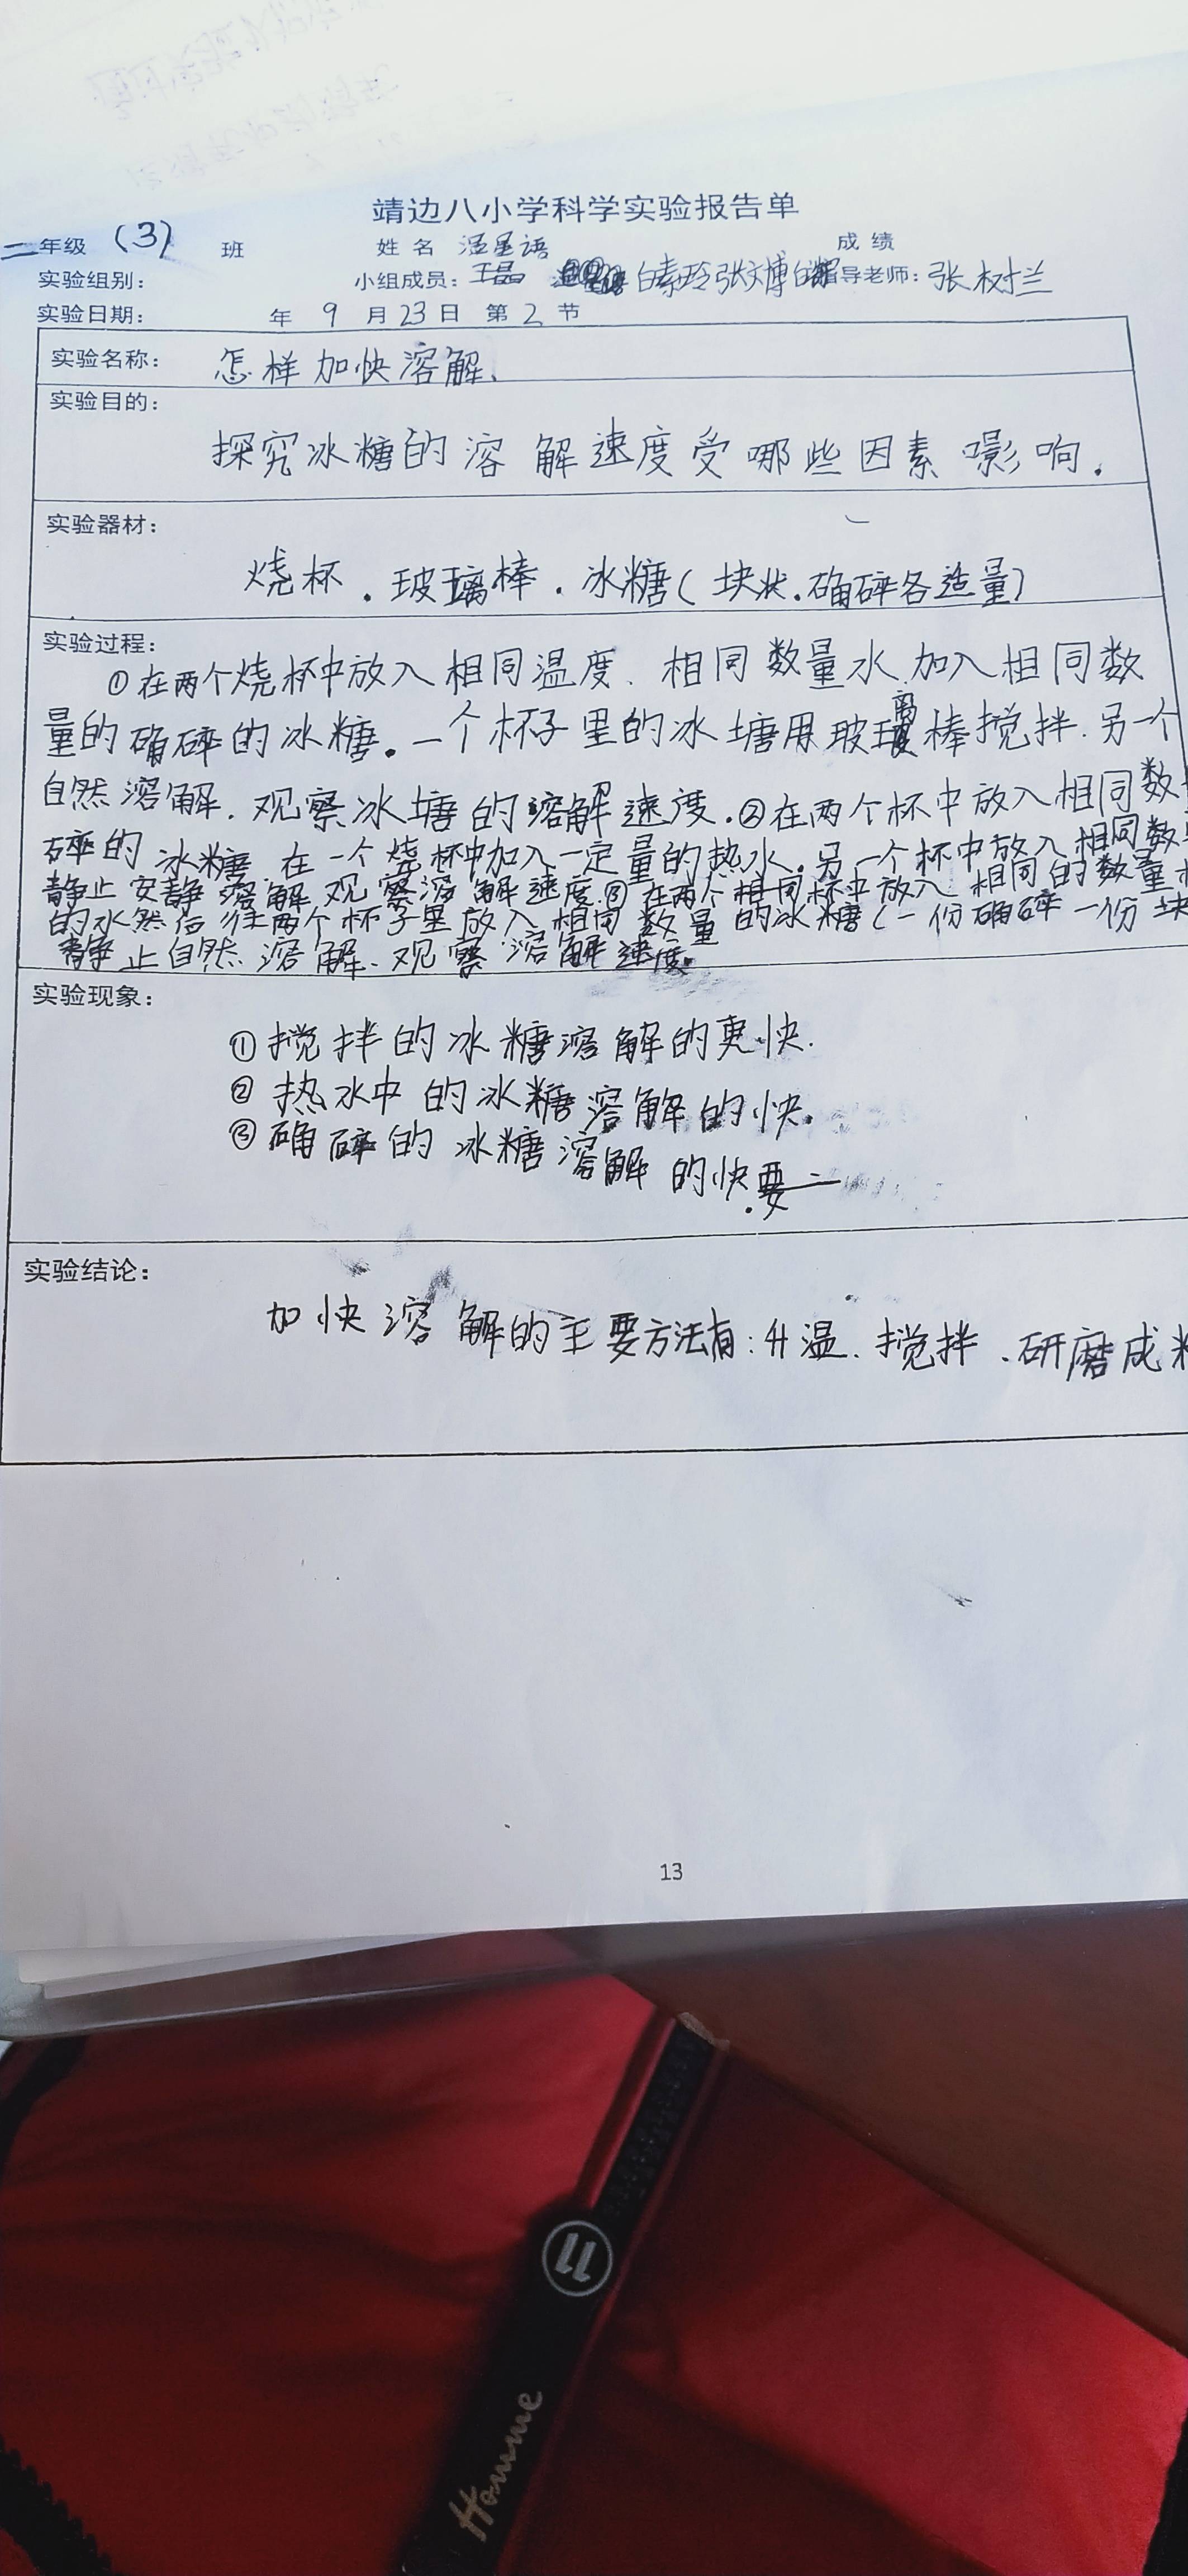 靖边八小学科学实验报告单
二年级 (3) 班 姓名 温星语 成绩
实验组别: 小组成员: 王晶 白素玲 张文博 导老师: 张树兰
实验日期: 年 9 月 23 日 第 2 节
实验名称: 怎样加快溶解.
实验目的:
探究冰糖的溶解速度受哪些因素影响.
实验器材:
烧杯.玻璃棒.冰糖(块状.确碎各造量)
实验过程:
①在两个烧杯中放入相同温度.相同数量水.加入相同数
量的确碎的冰糖.一个杯子里的冰塘用玻璃棒搅拌.另一个
自然溶解.观察冰塘的溶解速度.②在两个杯中放入相同数
碎的冰糖.在一个烧杯中加入一定量的热水.另一个杯中放入相同数
静止安静溶解观察溶解速度.③在两个相同杯中放入相同的数量
的水然后往两个杯子里放入相同数量的冰糖(一份确碎一份块
静止自然溶解.观察溶解速度.
实验现象:
①搅拌的冰糖溶解的更快.
②热水中的冰糖溶解的快.
③确碎的冰糖溶解的快.要
实验结论:
加快溶解的主要方法有:升温.搅拌.研磨成
13
11
Homme